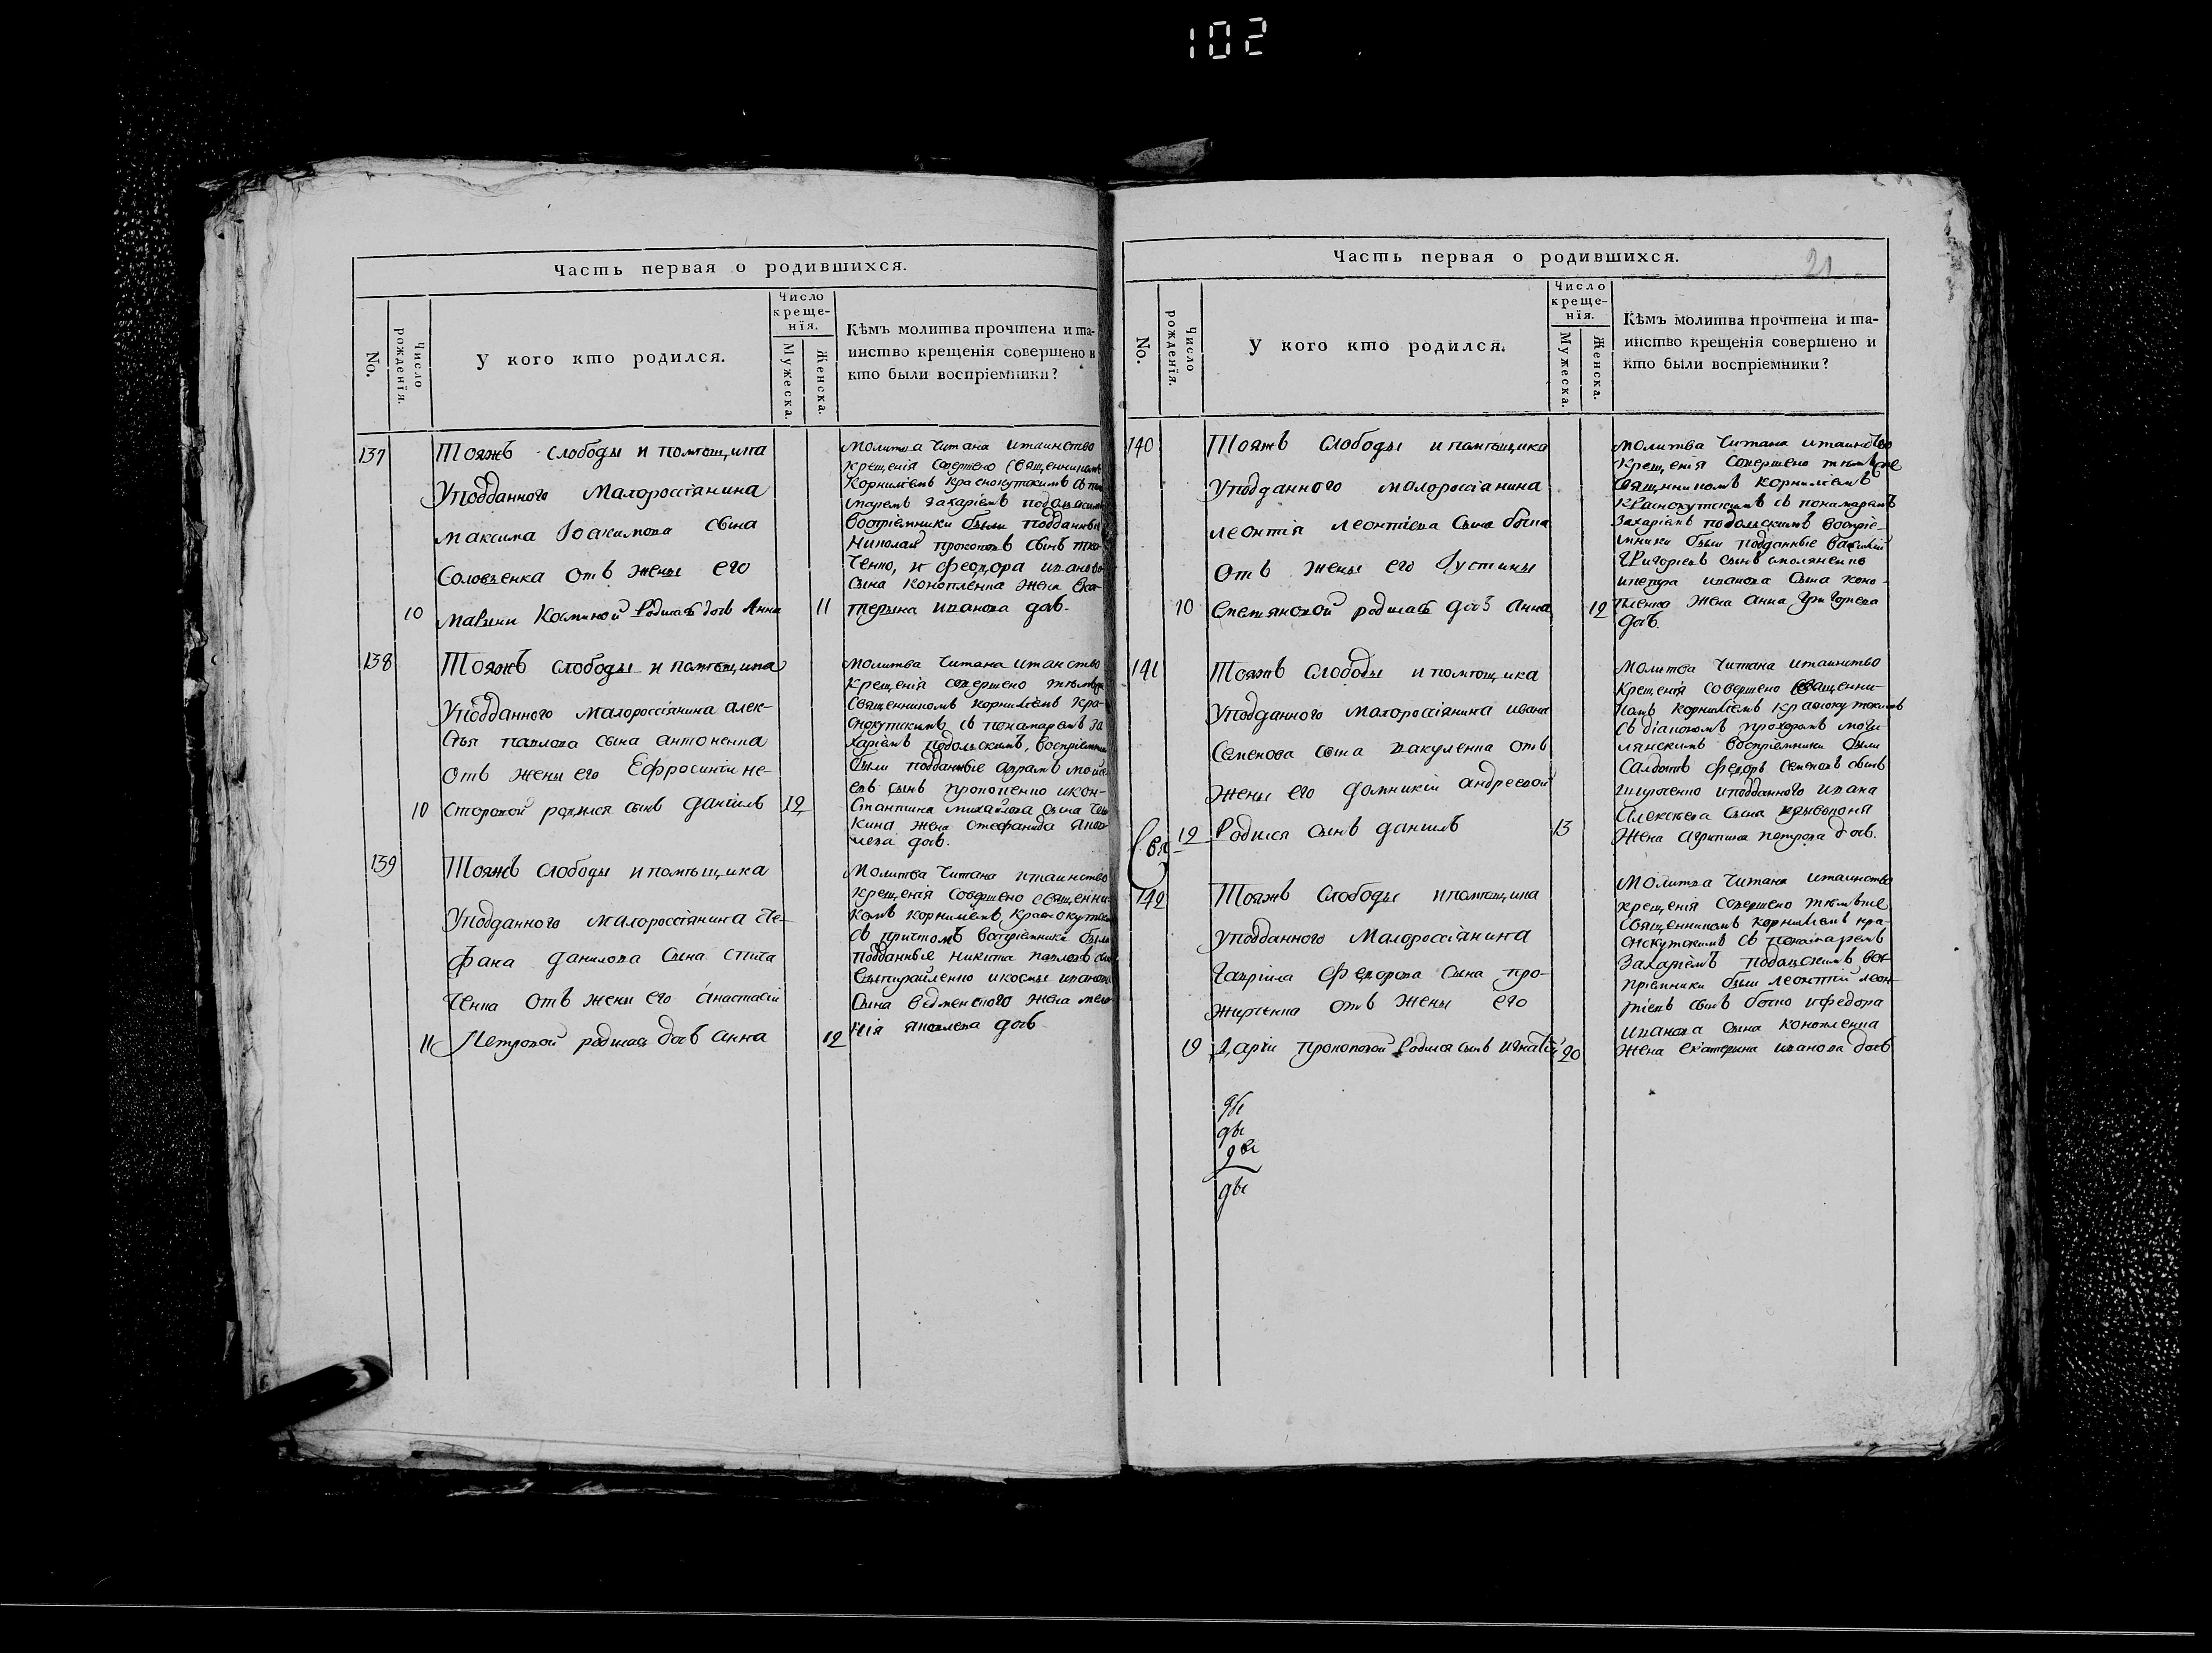 102
Часть первая о родившихся.
No.
Число рожденїя.
У кого кто родился.
Число
креще-
нїя.
Мужеска.
Женска.
Кѣмъ молитва прочтена и та-
инство крещенія совершено и
кто были воспріемники?
137
Тояжъ слободы и помѣщика
Уподданного Малороссіянина
максима Іоакимова сына
Соловьенка отъ жены его
10 Родилась дочь Анна 11
молитва Читана итаинство
Крещенія Совершено Священникомъ
Корниліемъ Краснокутскимъ
Захаріемъ подольскимъ
Воспріемники были подданные
Николай прокоповъ сынъ
Ченко, и Феодора иванова
Сына Коноплѣнка жена Ека-
терына иванова дочь.
138
Тояжъ слободы и помѣщика
Уподданного Малороссіянина алек-
сѣя павлова сына антоненка
Отъ жены его Ефросиніи не-
10 сторовой родился сынъ даніилъ 12
Молитва Читана итаинство
Крещенія совершено тѣмъже
Священникомъ корниліемъ кра-
снокутскимъ, съ понамаремъ за
харіемъ подольскимъ, воспріемники
были подданные
евъ сынъ прокопенко икон-
стантина михайлова сына
жена стефанида
дочь.
139
Тояжъ слободы и помѣщика
Уподданного малороссіянина Сте-
фана данилова Сына
Ченка отъ жены его анастасіи
11 Петровой родилась дочь анна 12
Молитва Читана итаинство
крещенія совершено священни-
комъ корниліемъ, краснокутскимъ
съ причтомъ воспріемники были
подданные никита павловъ
икосмы иванова
Сына жена
дочь
Часть первая о родившихся.
21
No.
Число рожденїя.
У кого кто родился.
Число
креще-
нїя.
Мужеска.
Женска.
Кѣмъ молитва прочтена и та-
инство крещенія совершено и
кто были воспріемники?
140
Тояжъ слободы и помѣщика
Уподданного малороссіянина
леонтія леонтіева сына
Отъ жены его Іустины
10 родилась дочь анна 12
молитва Читана итаинство
Крещенія совершено тѣмъже
Священникомъ корниліемъ
Краснокутскимъ съ понамаремъ
Захаріемъ подольскимъ воспріе-
мники были подданные василій
Григоріевъ сынъ
ипетра иванова сына коно-
пленка жена анна григорева
дочь.
141
Тояжъ слободы и помѣщика
Уподданного малороссіянина ивана
Семенова сына вакуленка отъ
жены его домникіи андреевой
12 Родился сынъ даніилъ 13
Молитва Читана итаинство
Крещенія совершено Священни-
комъ корниліемъ краснокутскимъ
съ діакономъ прохоромъ моги
лянскимъ воспріемники были
Салдатъ Федоръ Семеновъ сынъ
иподданного ивана
Алексѣева сына
жена агрипина петрова дочь.
142
Тояжъ слободы ипомѣщика
уподданного Малороссіянина
Гавріила Федорова сына про-
отъ жены его
19 Даріи прокоповой Родился сынъ игнатій 20
Молитва Читана итаинство
крещенія совершено тѣмъже
священникомъ корниліемъ кра-
снокутскимъ съ понамаремъ
Захаріемъ подольскимъ вос-
пріемники были леонтій леон-
тіевъ сынъ ифедора
иванова сына конопленка
жена екатерына иванова дочь